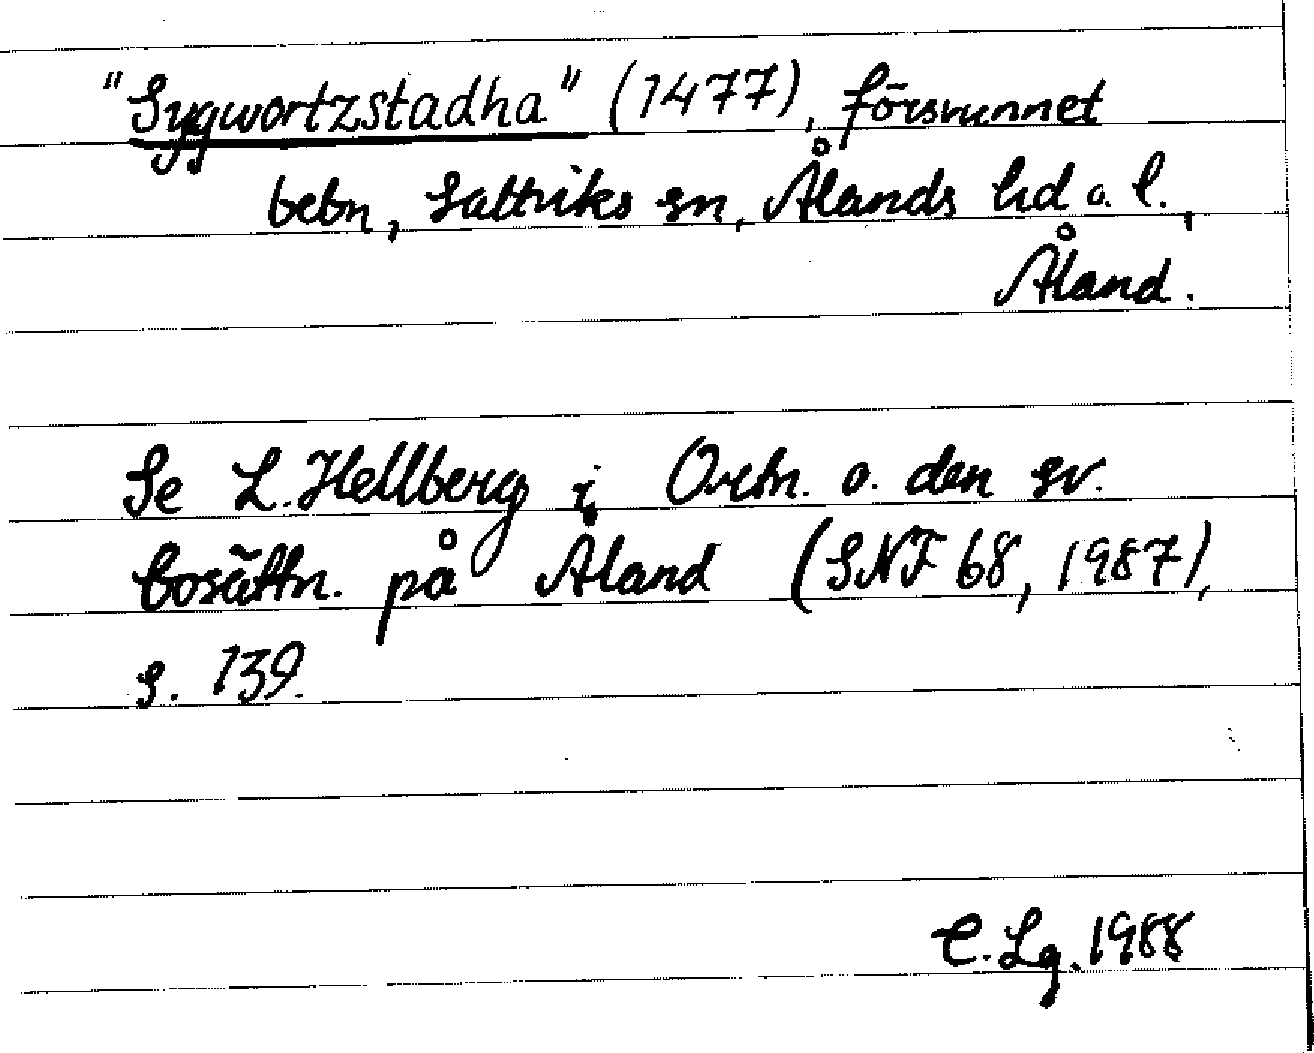 "Sygwortzstadha" (1477), försvunnet
bebn, Saltviks sn, Ålands hd o. l.,
Åland.
Se L. Hellberg i Ortn. o. den sv.
bosättn. på Åland (SNF 68, 1987),
s. 139.
C. Lg. 1988